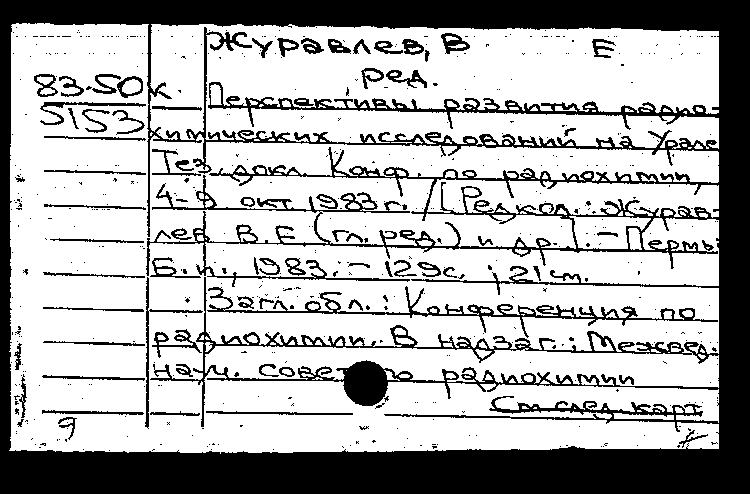 Журавлев, В Е
ред.
83.50к
5153
Перспективы развития радио-
химических исследований на Урале
Тез. докл. Конф. по радиохимии,
4-9 окт 1983 г. / [Редкол.: Журав-
лев В. Е (гл. ред.) и др.]. - Пермь
Б. и., 1983. - 129с. ; 21 см.
Загл. обл.: Конференция по
радиохимии. В надзаг.: Межвед.
науч. совет по радиохимии
См след. карт
9